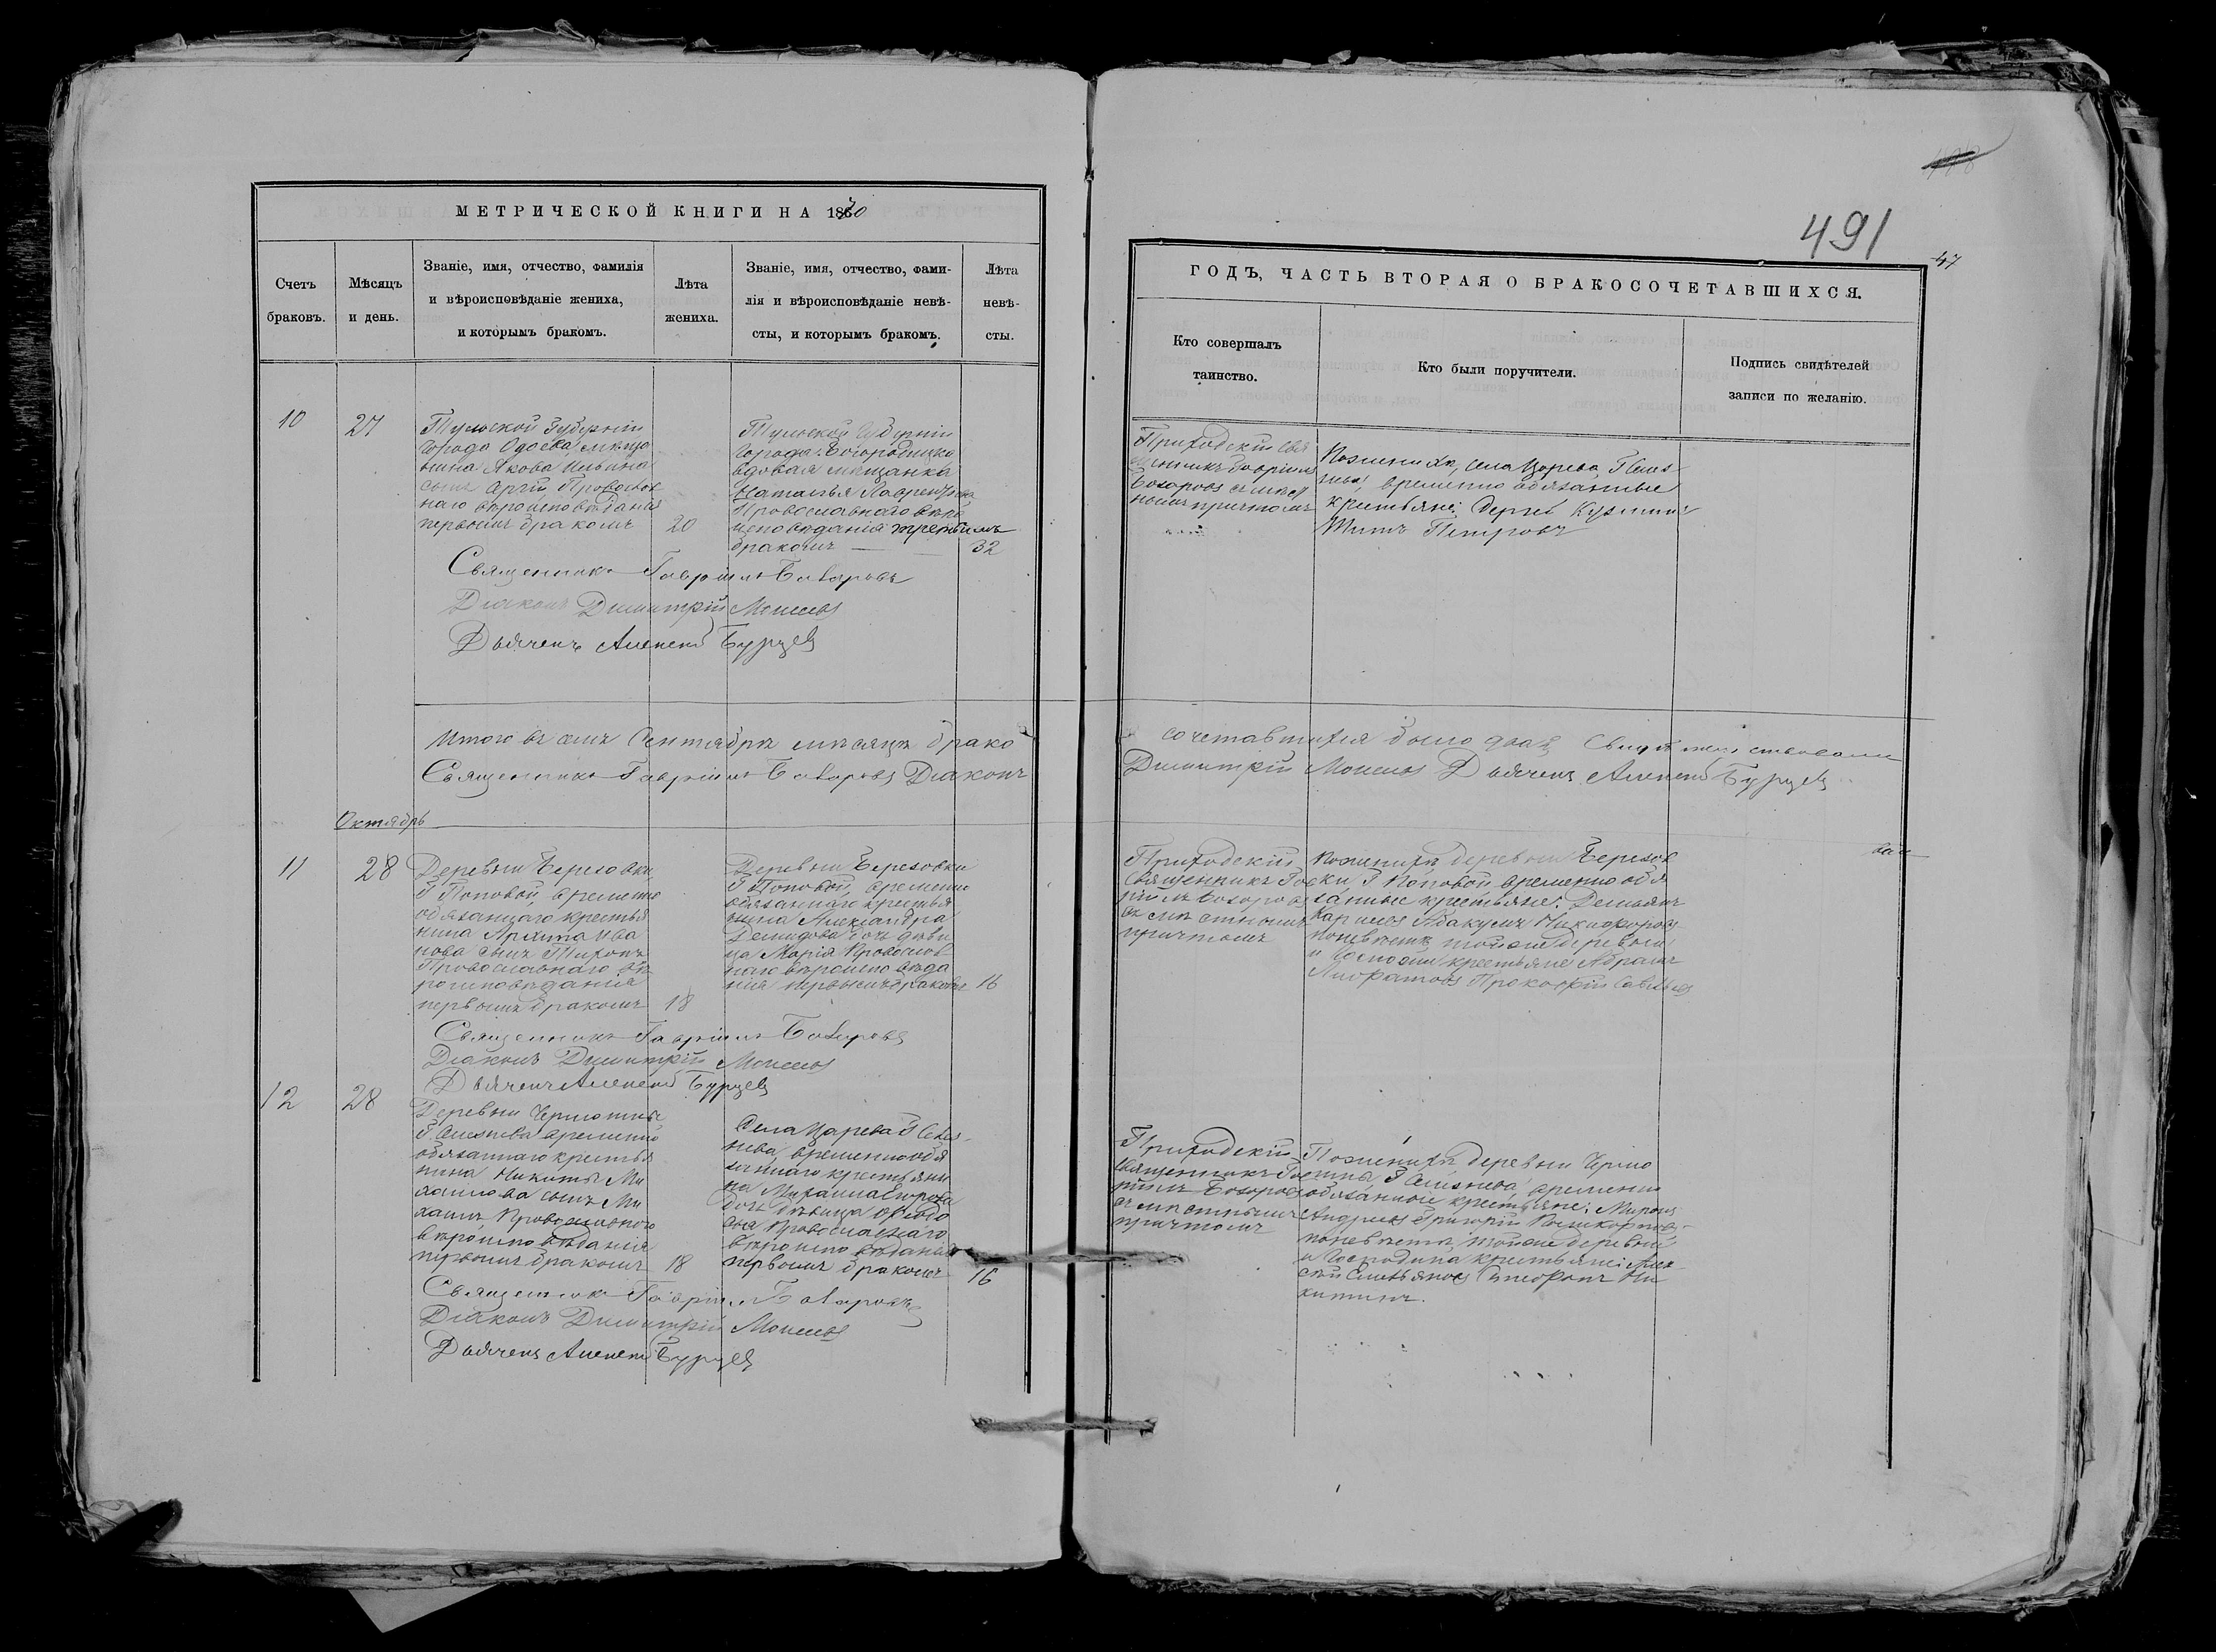 МЕТРИЧЕСКОЙ КНИГИ НА 1870
Счетъ браковъ.
Мѣсяцъ и день.
Званіе, имя, отчество, фамилія
и вѣроисповѣданіе жениха,
и которымъ бракомъ.
Лѣта
жениха.
Званіе, имя, отчество, фами-
лія и вѣроисповѣданіе невѣ-
сты, и которымъ бракомъ.
Лѣта
невѣ-
сты.
10
27
Тульской Губерніи
Города Одоева, мѣща
нина Якова Ильина
сынъ Православ
наго вѣроисповѣданія
первымъ бракомъ 20
Тульской Губерніи
Города Богородицка
вдовая мѣщанка
Наталья Лаврентьева
Православнаго вѣро
исповѣданія третьимъ
бракомъ — 32
Священникъ Гавріилъ
Діаконъ Димитрій
Дьячекъ Алексей Бурцев
Итого въ семъ Сентябрѣ месяцѣ брако
Священникъ Гавріилъ Діаконъ
Октябрь
11
28
Деревни Березовки
Г Поповой, временно
обязаннаго крестья
нина Архипа Ива
нова сынъ Тихонъ
Православнаго вѣ
роисповѣданія
первымъ бракомъ 18
Деревни Березовки
Г Поповой, временно
обязаннаго крестья
нина Александра
Демидова дочь деви
ца Марія Православ
наго вѣроисповѣда
нія первымъ бракомъ 16
Священникъ Гавріилъ
Діаконъ Димитрій
Дьячекъ Алексей Бурцев
12
28
Деревни
Г. временно
обязаннаго крестья
нина Никиты Ми
хаилова сынъ Ми
хаилъ Православнаго
вѣроисповѣданія
первымъ бракомъ 18
Села Царева Г
временно обя
заннаго крестьяни
на Михаила
дочь дѣвица Ѳеодо
сья Православнаго
вѣроисповѣданія
первымъ бракомъ 16
Священникъ Гавріилъ
Діаконъ Димитрій
Дьячекъ Алексей Бурцев
498
491
47
ГОДЪ, ЧАСТЬ ВТОРАЯ О БРАКОСОЧЕТАВШИХСЯ.
Кто совершалъ
таинство.
Кто были поручители.
Подпись свидѣтелей
записи по желанію.
Приходскій свя
щенникъ Гавріилъ
съ мѣст
нымъ причтомъ
По женихѣ, села Царева, Г
временно обязанные
крестьяне: Сергѣй Кузьминъ
Титъ Петровъ
сочетавшихся было два Свидѣтельствовали
Димитрій Дьячекъ Алексей Бурцев
Приходскій
Священникъ Гав
ріилъ
съ мѣстнымъ
причтомъ
По женихѣ деревни Березов
ки, Г Поповой временно обя
занные крестьяне: Демьянъ
Карповъ Абакумъ Никифоровъ
по невѣстѣ той же деревни
и Госпожи крестьяне Абрамъ
Прокофій Савельев
Приходскій
священникъ Гав
ріилъ
съ мѣстнымъ
причтомъ
По женихѣ деревни
Г временно
обязанные крестьяне: Миронъ
Андреев Григорій
по невѣстѣ, той же деревни
и Господина крестьяне: Алек
сѣй Емельянов Ни
китинъ.